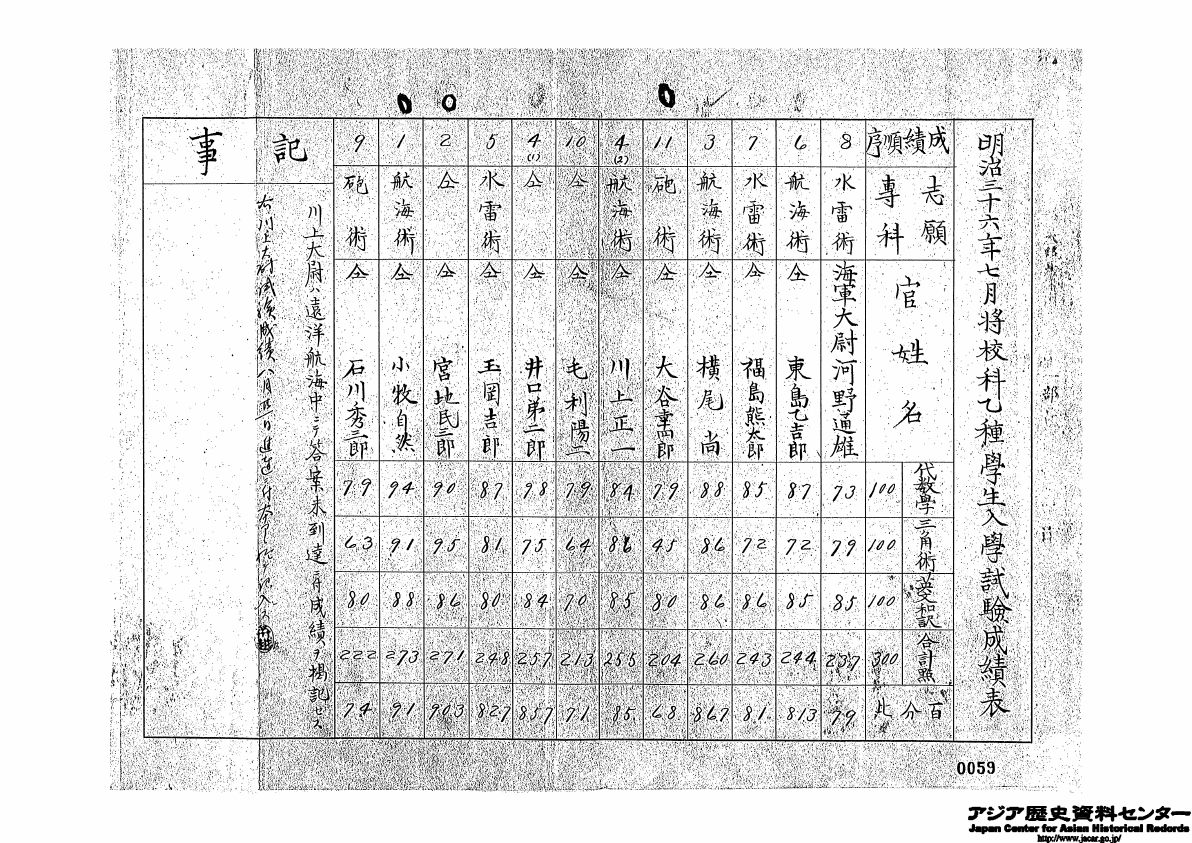 明治三十六年七月將校科乙種學生入學試驗成績表
成績順序 志願專科 官姓名 代數學 100 三角術 100 英和訳 100 合計點 300 百分比
8 水雷術 海軍大尉 河野通雄 73 79 85 237 79
6 航海術 仝 東島乙吉郎 87 72 85 244 813
7 水雷術 仝 福島熊太郎 85 72 86 243 81.
3 航海術 仝 橫尾尚 88 86 86 260 867
11 砲術 仝 大谷幸四郎 79 45 80 204 68
4(2) 航海術 仝 川上正一 84 86 85 255 85
10 仝 仝 毛利陽一 79 64 70 213 71
4(1) 仝 仝 井口第一郎 98 75 84 257 857
5 水雷術 仝 玉岡吉郎 87 81 80 248 827
2 仝 仝 宮地民三郎 90 95 86 271 903
1 航海術 仝 小牧自然 94 91 88 273 91
9 砲術 仝 石川秀三郎 79 63 80 222 74
記事
川上大尉ハ遠洋航海中ニテ答案未到達ニ付成績ヲ揭記セス
右川上大尉試驗成績八月
0059
アジア歴史資料センター
Japan Center for Asian Historical Records
http://www.jacar.go.jp/